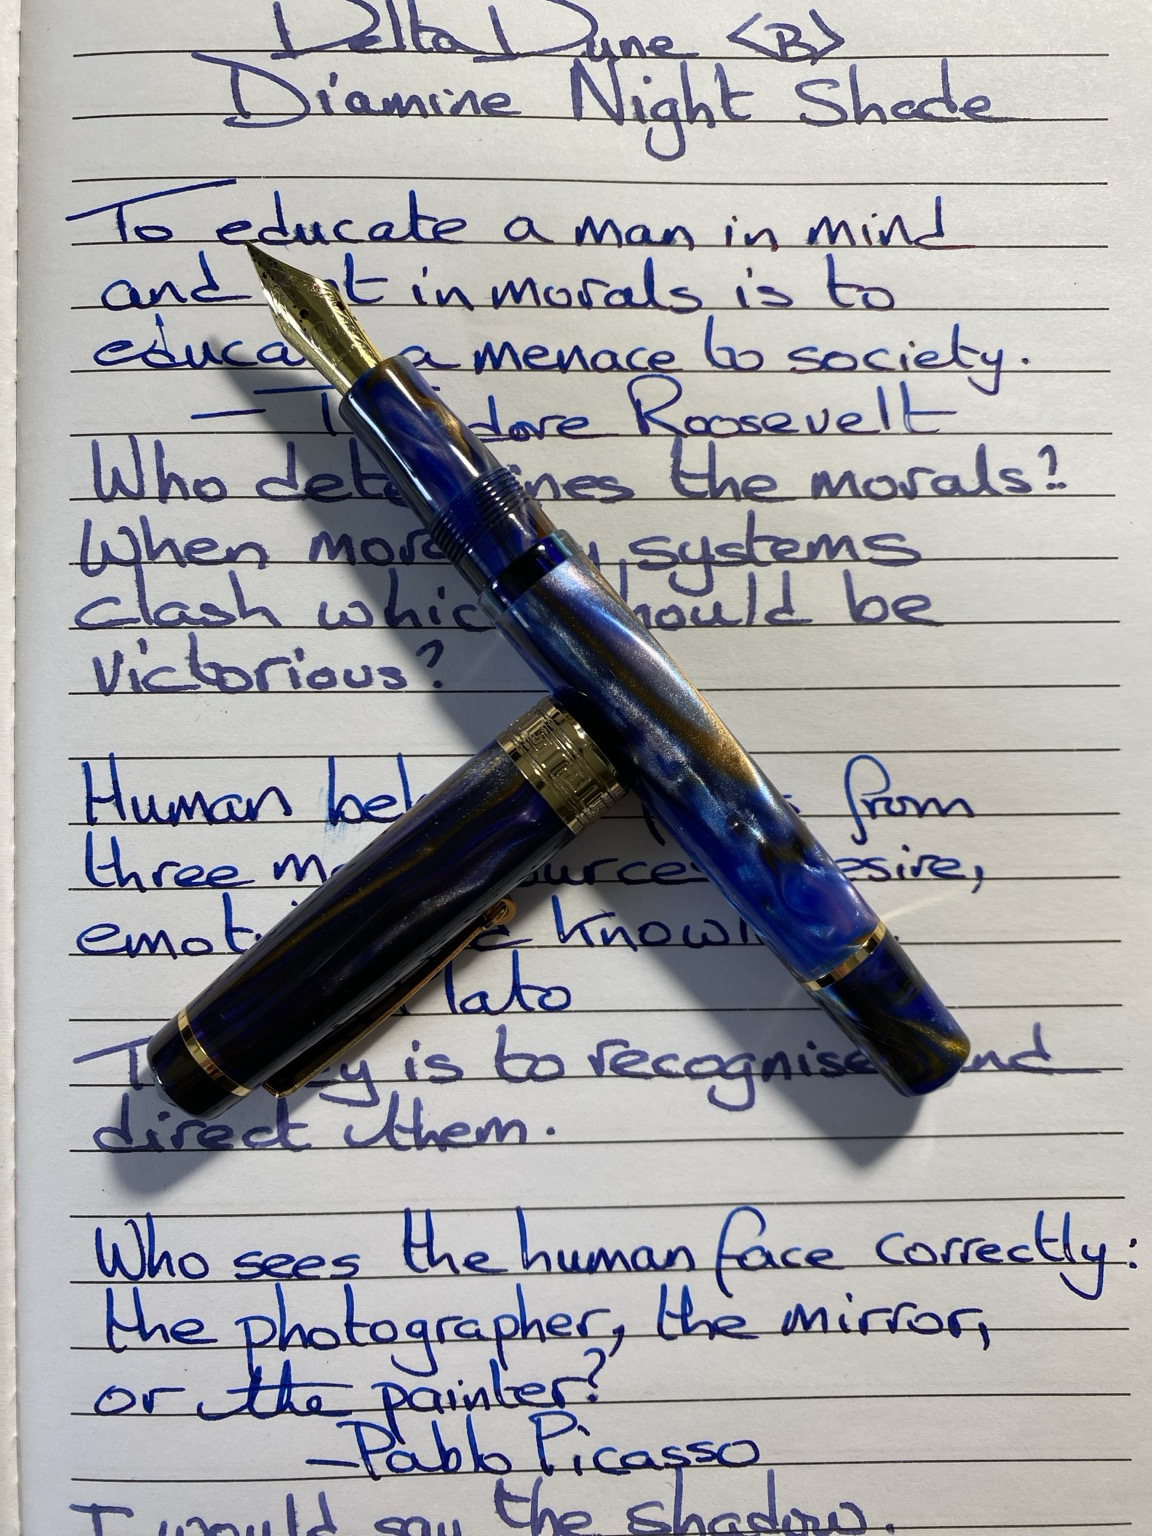 Delta Dune <B>
Diamine Night Shade
To educate a man in mind
and t in morals is to
educa a menace to society.
— T dore Roosevelt
Who dete ines the morals?
When mora y systems
clash whic should be
victorious?
Human beh s from
three ma ources desire,
emoti knowl
lato
T ey is to recognise and
direct them.
Who sees the human face correctly:
the photographer, the mirror,
or the painter?
—Pablo Picasso
I would say the shadow.